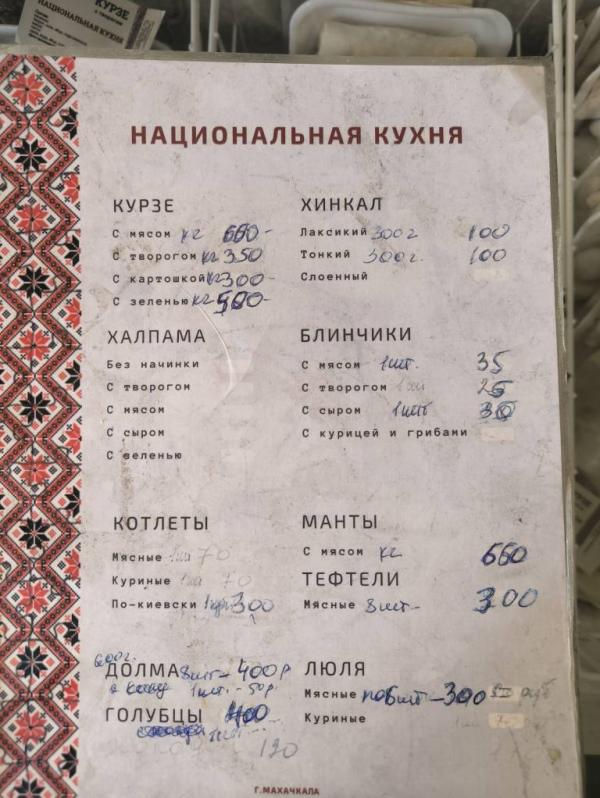 КУРЗЕ
с творогом
НАЦИОНАЛЬНАЯ КУХНЯ
НАЦИОНАЛЬНАЯ КУХНЯ
КУРЗЕ
С мясом кг 660-
С творогом кг 350
С картошкой кг 300-
С зеленью кг
ХИНКАЛ
Лаксикий 300г 100
Тонкий 300г. 100
Слоенный
ХАЛПАМА
Без начинки
С творогом
С мясом
С сыром
С зеленью
БЛИНЧИКИ
С мясом 1шт. 35
С творогом
С сыром 1шт
С курицей и грибами
КОТЛЕТЫ
Мясные 1шт 70
Куриные 1шт 70
По-киевски 300
МАНТЫ
С мясом кг 660
ТЕФТЕЛИ
Мясные 8шт- 300
600г.
ДОЛМА 8шт- 400р
1шт.-50р.
ГОЛУБЦЫ 400
120
ЛЮЛЯ
Мясные по 6шт-300 руб
Куриные
Г.МАХАЧКАЛА